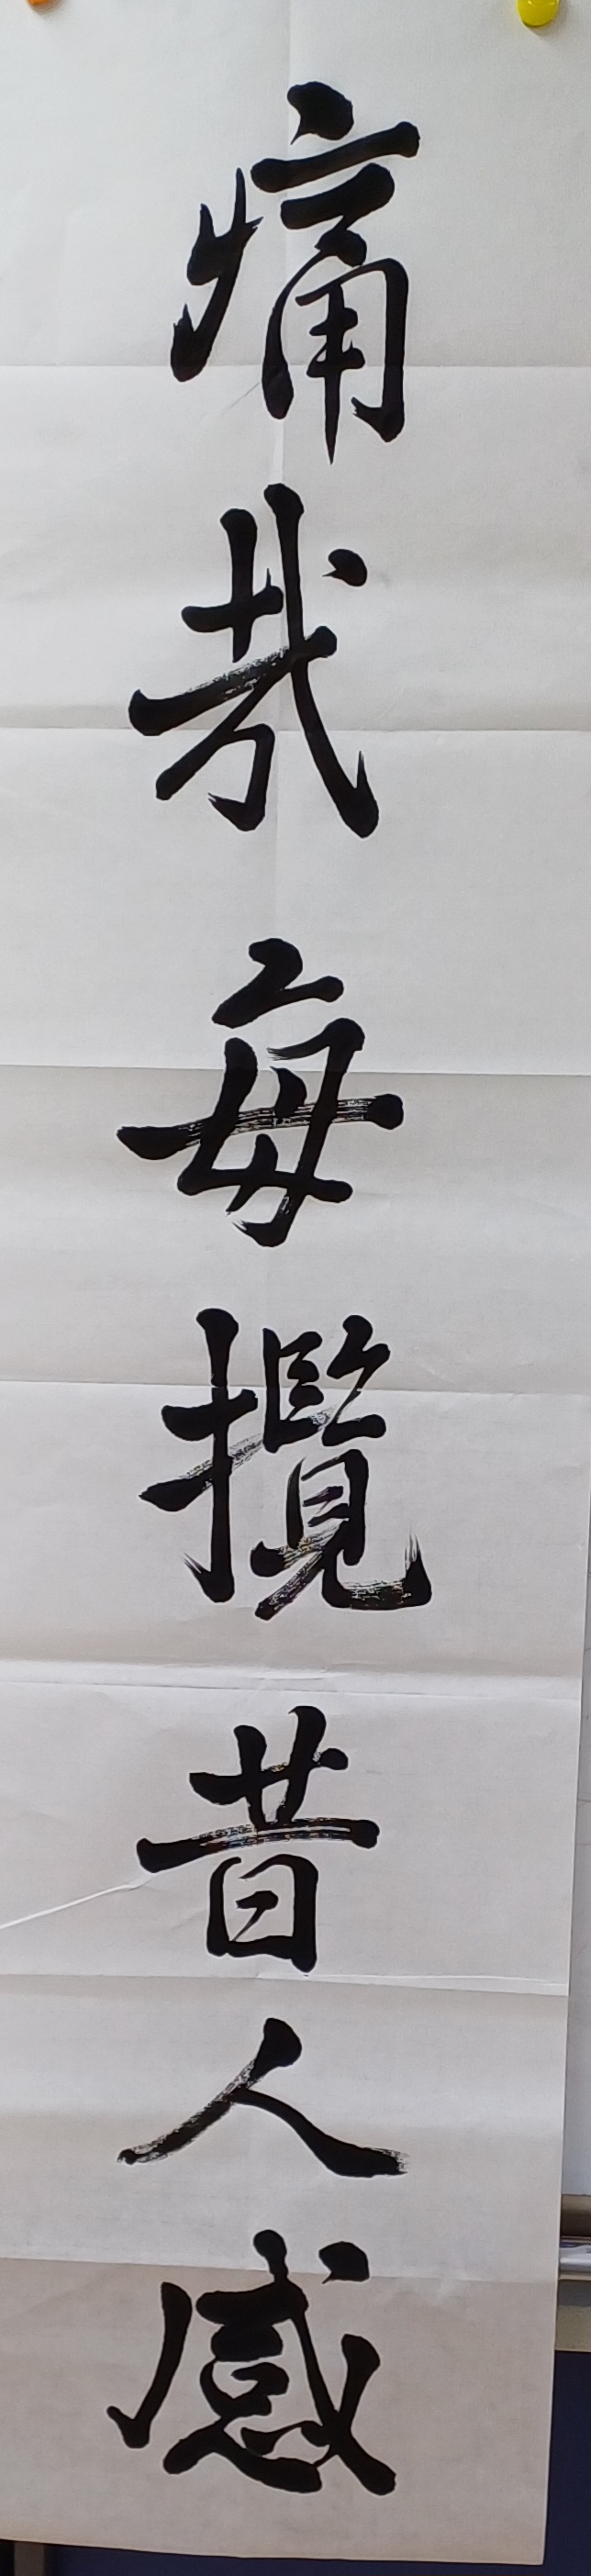 痛哉每攬昔人感